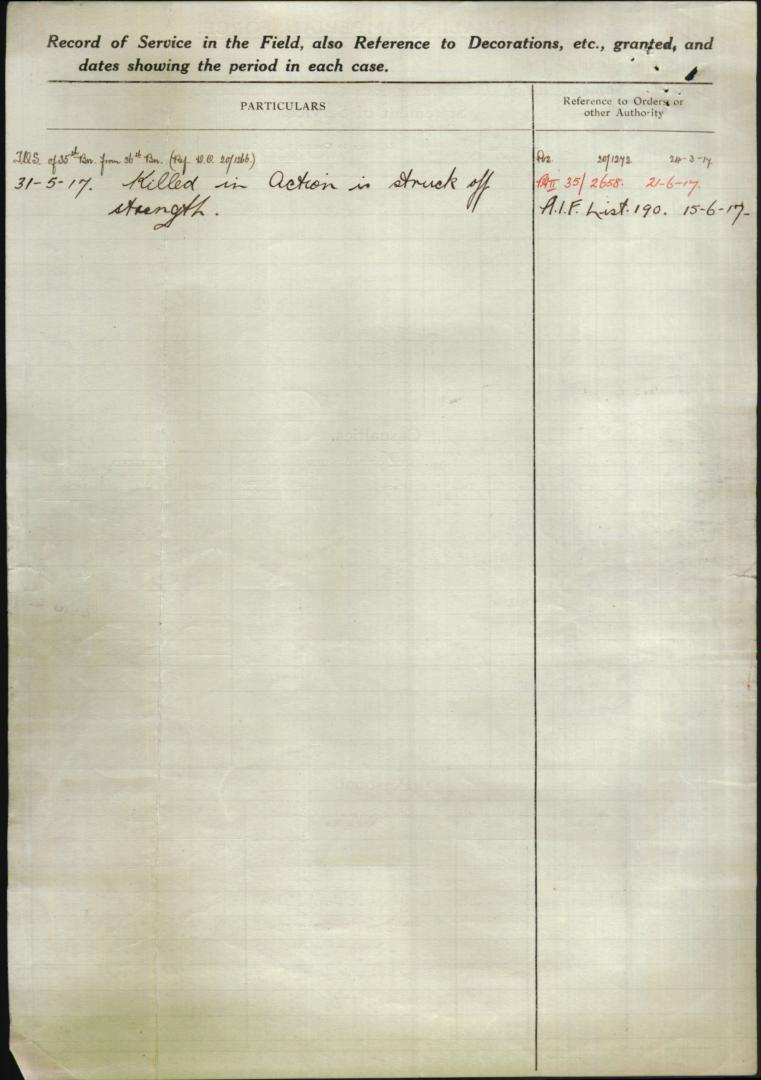 Record of Service in the Field, also Reference to Decorations, etc., granted, and
dates showing the period in each case.
PARTICULARS
Reference to Orders or
other Authority
T.O.S. of 35th Bn. from 36th Bn. (Ref. D.O. 20/1266.)
20/1272 24-3-17.
31-5-17. Killed in Action is struck off
strength.
PtII 35/2658. 21-6-17.
A.I.F. List. 190. 15-6-17.